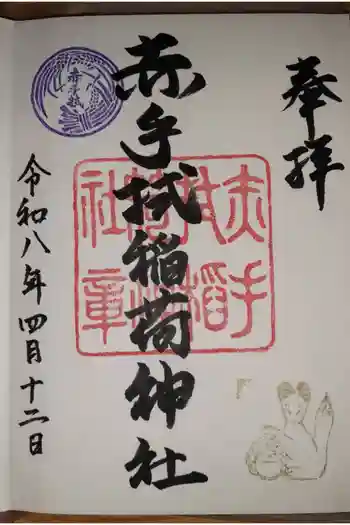 奉拝
赤手拭稲荷神社
令和八年四月十二日
赤手
拭稲
荷神
社章
赤手拭